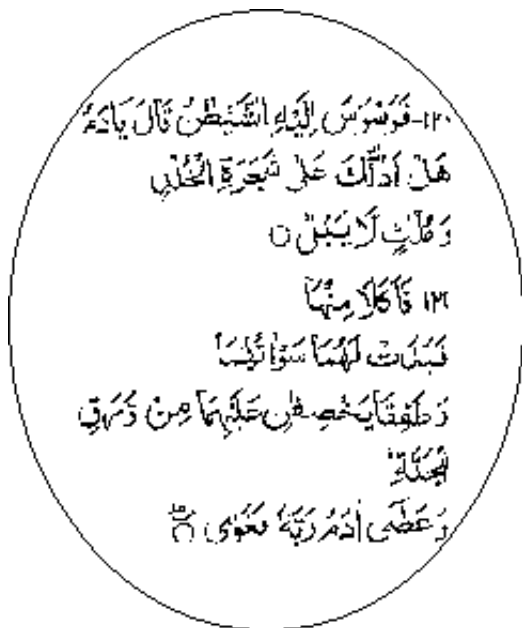 ١٢٠- فَوَسْوَسَ إِلَيْهِ الشَّيْطٰنُ قَالَ يَادَمُ
هَلْ اَدُلُّكَ عَلٰى شَجَرَةِ الْخُلْدِ
وَمُلْكٍ لَا يَبْلٰى ○
١٢١ فَاَكَلَا مِنْهَا
فَبَدَتْ لَهُمَا سَوْاٰتُهُمَا
وَطَفِقَا يَخْصِفٰنِ عَلَيْهِمَا مِنْ وَّرَقِ
الْجَنَّةِ
وَعَصٰى اٰدَمُ رَبَّهٗ فَغَوٰى ○